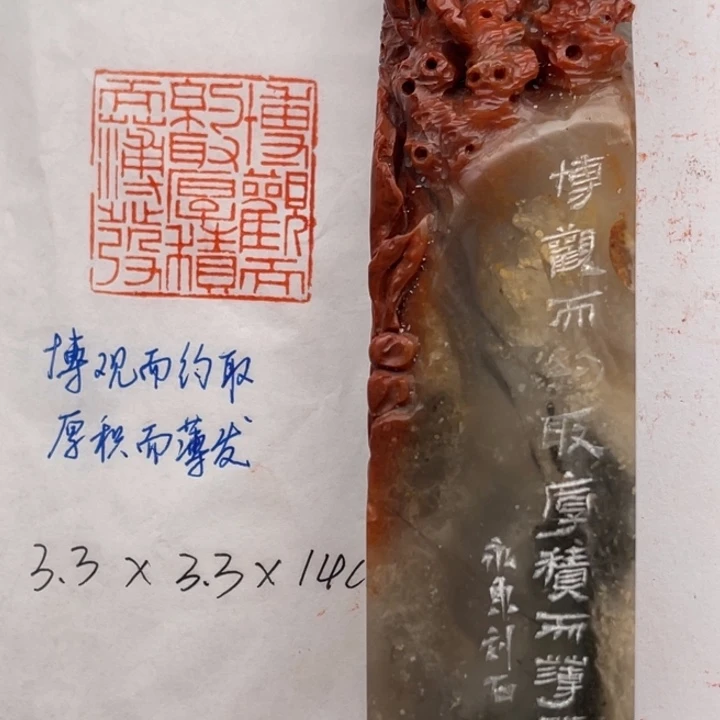 博觀而
約取厚積
而薄發
博观而约取
厚积而薄发
3.3 x 3.3 x 14c
博觀而約取厚積而薄
刻石